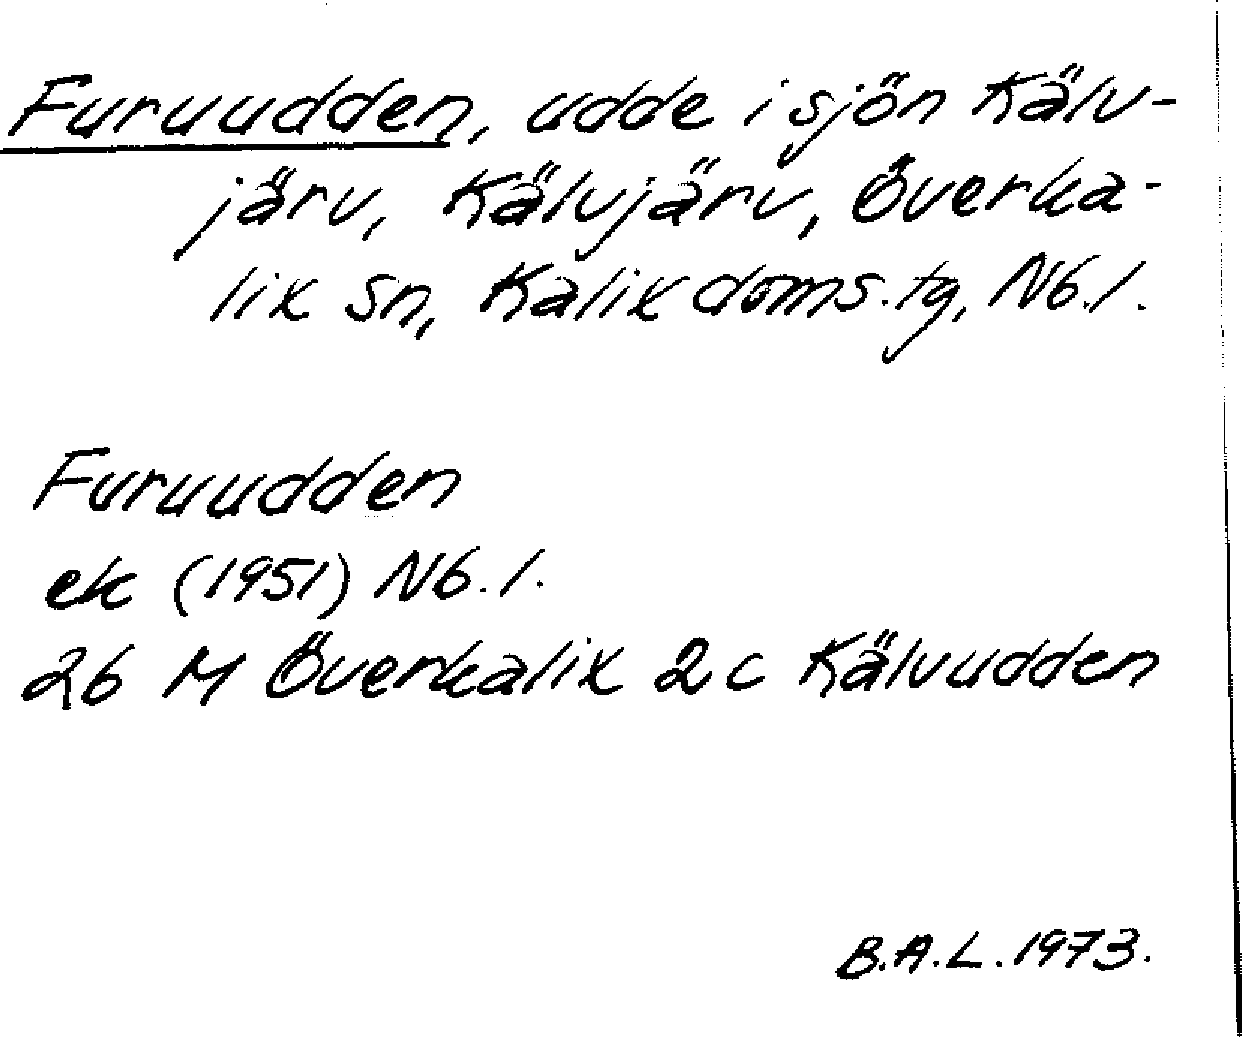 Furuudden, udde i sjön Kälv-
järv, Kälvjärv, Överka-
lix sn, Kalix doms.tg, Nb.l.
Furuudden
ek (1951) Nb.l.
26 M Överkalix 2c Kälvudden
B.A.L. 1973.